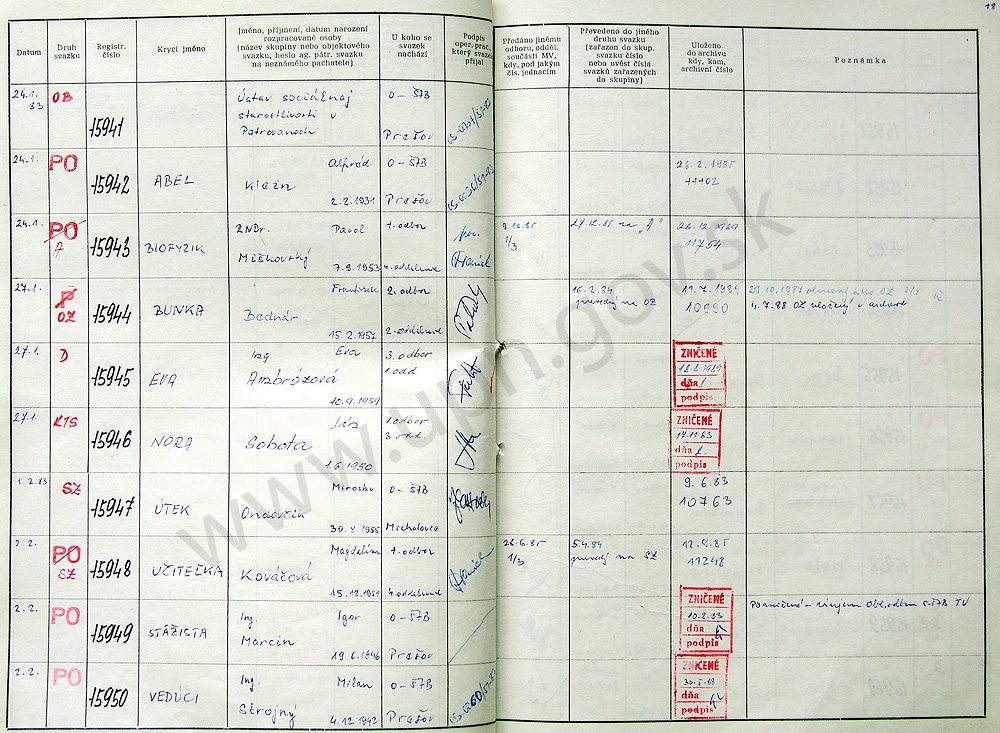 18
Datum
Druh svazku
Registr. číslo
Krycí jméno
Jméno, příjmení, datum narození
rozpracované osoby
(název skupiny nebo objektového
svazku, heslo ag. pátr. svazku
na neznámého pachatele)
U koho se
svazek
nachází
Podpis
oper. prac.,
který svazek
přijal
Předáno jinému
odboru, odděl.
součásti MV,
kdy, pod jakým
čís. jednacím
Převedeno do jiného
druhu svazku
(zařazen do skup.
svazku číslo
nebo uvést čísla
svazků zařazených
do skupiny)
Uloženo
do archivu
kdy, kam,
archivní číslo
Poznámka
24.1. 83 OB 15941 Ústav sociálnej O-ŠTB
starostlivosti v
Petrovanoch Prešov
24.1. PO 15942 ABEL Alfréd O-ŠTB 26.2.1985
Klein
2.2.1931 Prešov
24.1. PO A 15943 BIOFYZIK RNDr. Pavol 1. odbor 9.10.85 27.12.85 na "A" 28.12.1989
Miškovský 1/3 11754
7.9.1953 4. oddelenie
27.1. P OZ 15944 BUNKA František 2. odbor 16.2.84 11.7.1984
Bednár na OZ 10990 4.7.88 OZ uložený v
15.2.1957 2. oddelenie
27.1. D 15945 EVA Ing. Eva 3. odbor ZNIČENÉ
Ambrózová 1. odd
10.9.1959 dňa
podpis
27.1. KTS 15946 NORA Ján 1. odbor ZNIČENÉ
Sobota 3. odd. 14.11.83
1.6.1950 dňa
podpis
1.2.83 SZ 15947 ÚTEK O-ŠTB 9.6.83
Ondovčík 10763
30.8.1955 Michalovce
2.2. PO SZ 15948 UČITEĽKA Magdaléna 1. odbor 26.6.85 5.4.84 12.9.85
Kováčová 1/3 na SZ 11248
15.12.1951 4. oddelenie
2.2. PO 15949 STÁŽISTA Ing. Igor O-ŠTB ZNIČENÉ
Marcin 10.2.83
19.6.1946 Prešov dňa
podpis
2.2. PO 15950 VEDÚCI Ing. Milan O-ŠTB ZNIČENÉ
Strojný
4.12.1942 Prešov dňa
podpis
www.upn.gov.sk